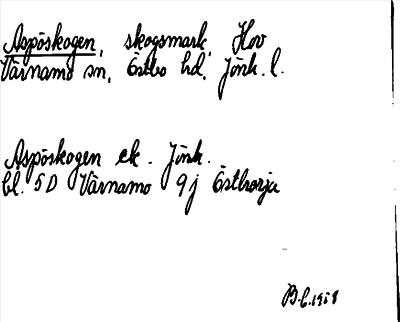 Aspöskogen, skogsmark, Hov
Värnamo sn, Östbo hd, Jönk. l.
Aspöskogen ek. Jönk.
bl. 5D Värnamo 9j Östhorja